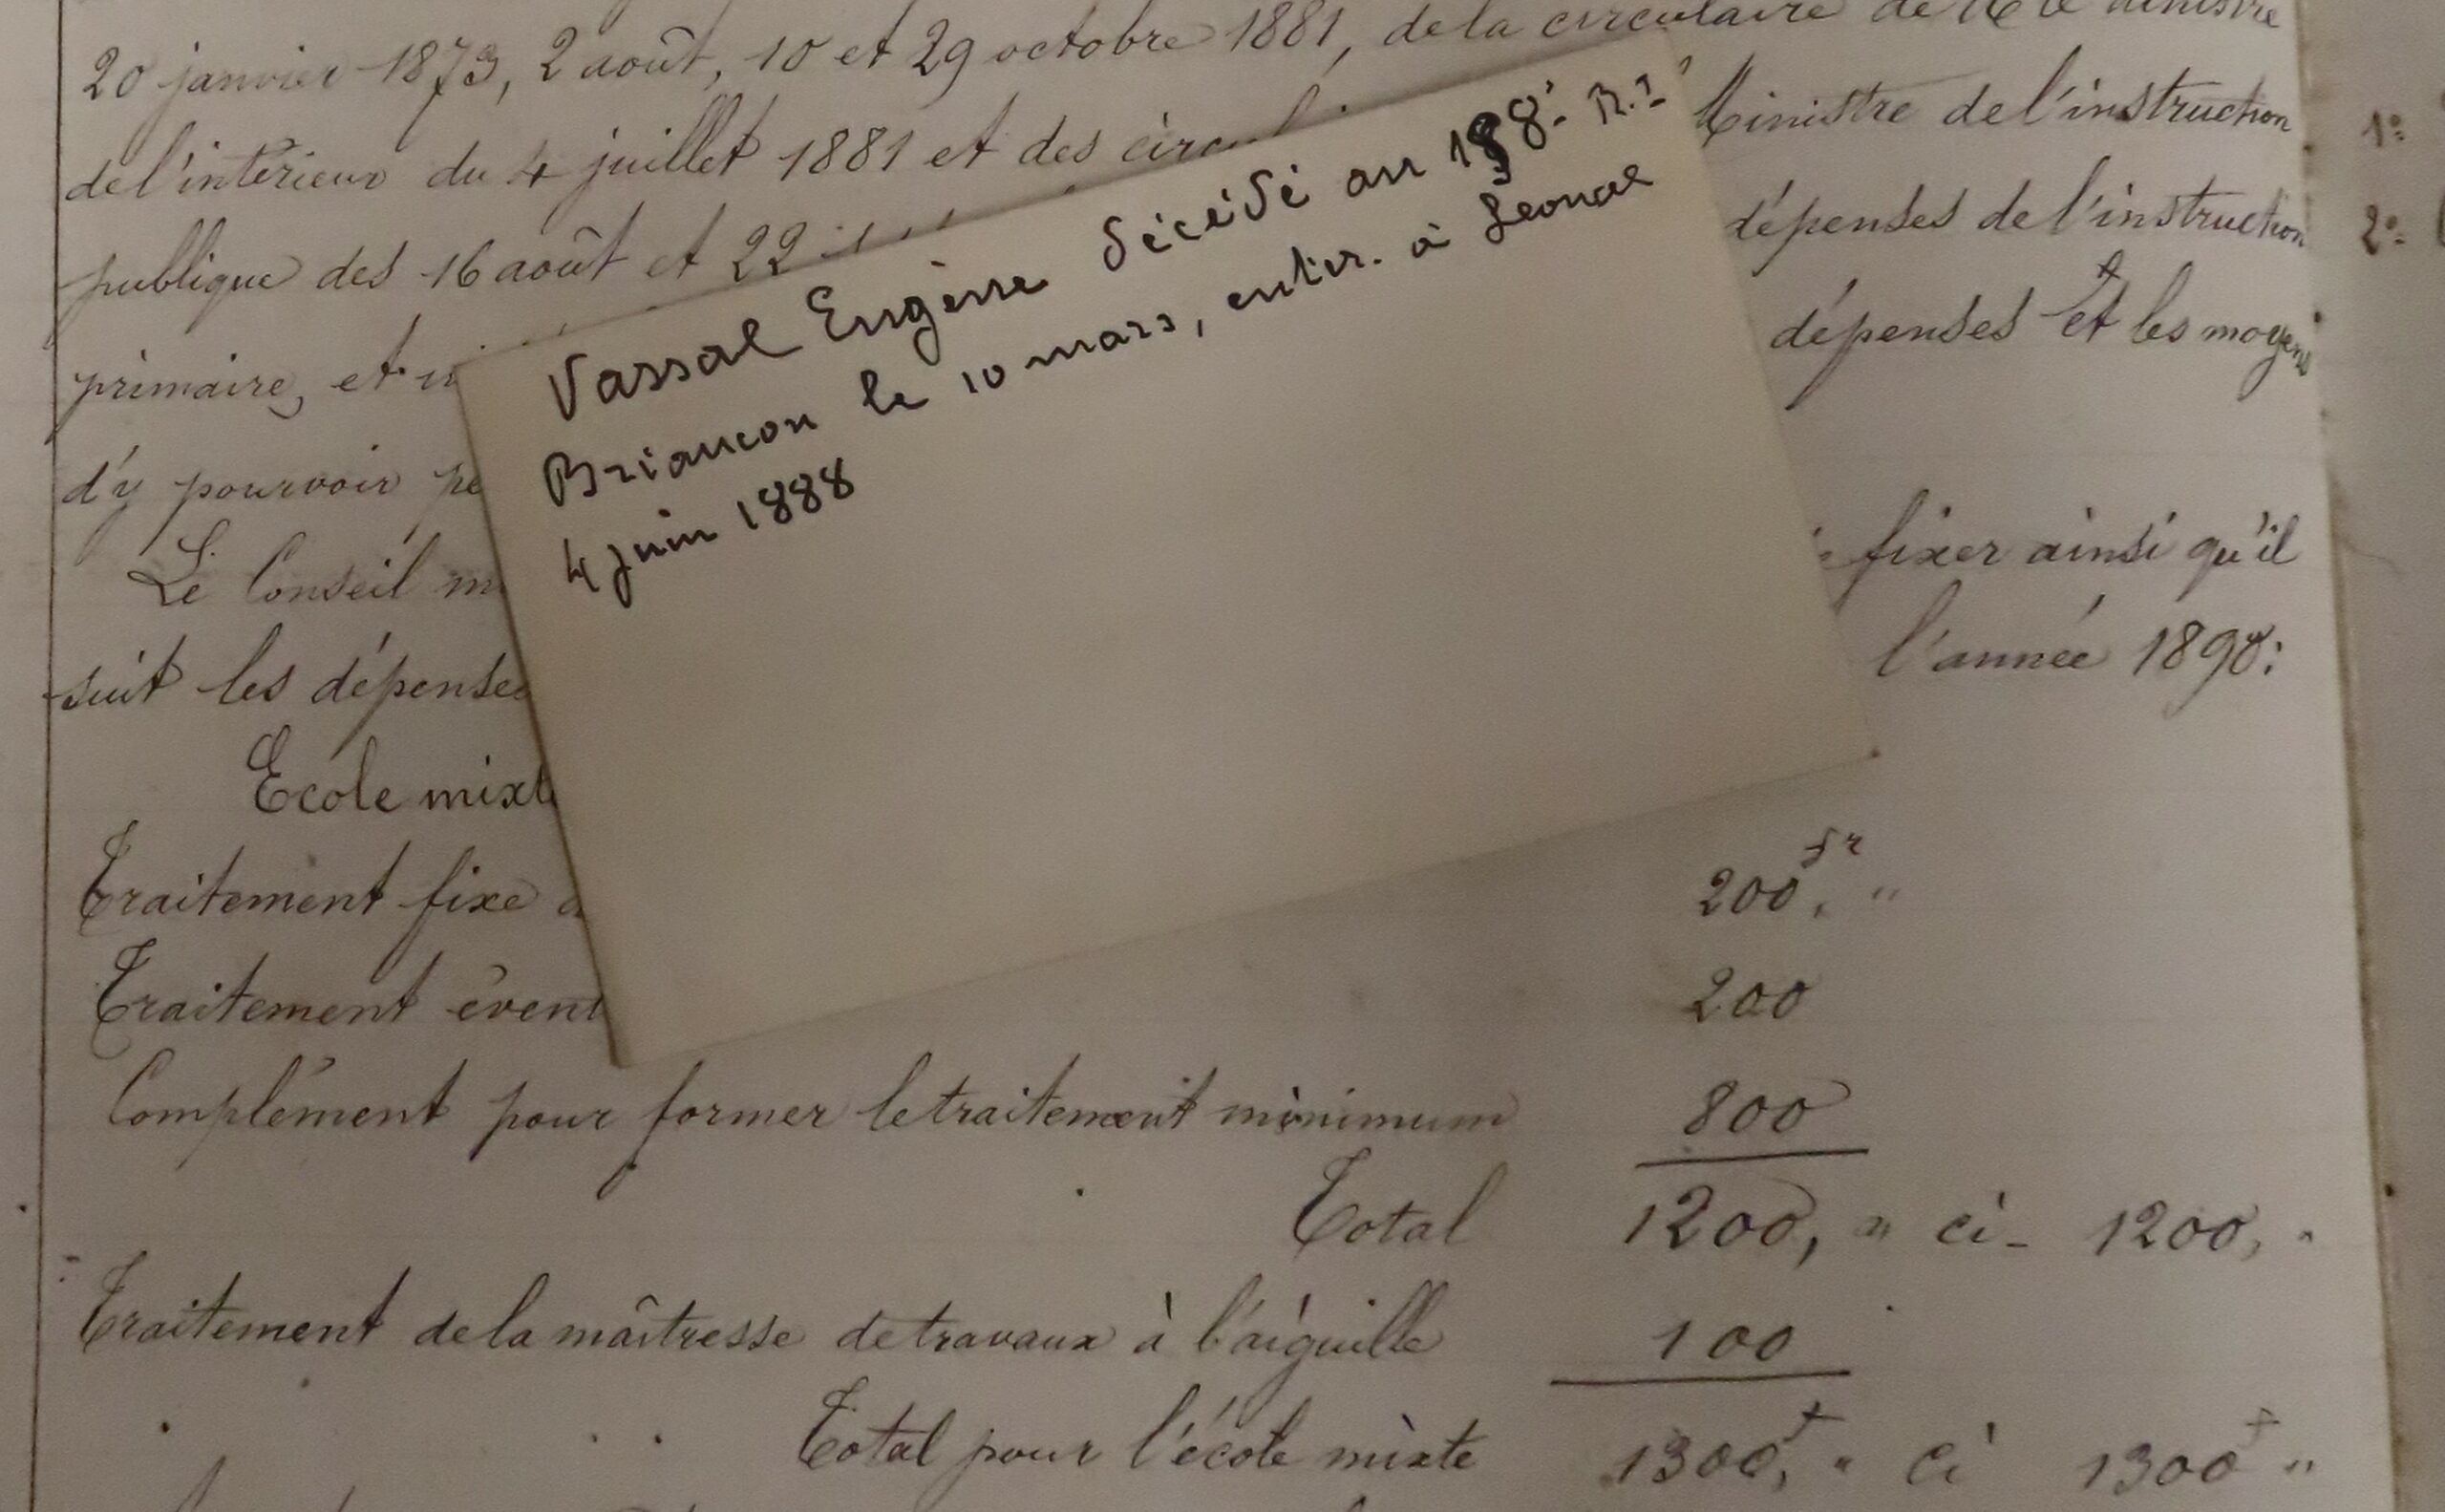 20 janvier 1873, 2 août, 10 et 29 octobre 1881, de la circulaire de Mr le ministre
de l'intérieur du 4 juillet 1881 et des Ministre de l'instruction
publique des 16 août et 22 dépenses de l'instruction
primaire, et dépenses et les moyens
d'y pourvoir
Le Conseil fixer ainsi qu'il
suit les dépenses l'année 1890:
Ecole mixte
Traitement fixe 200, fr "
Traitement 200
Complément pour former le traitement minimum 800
Total 1200, " ci - 1200, "
Traitement de la maîtresse de travaux à l'aiguille 100
Total pour l'école mixte 1300,f " ci 1300f "
Vassal Eugène décédé au R.I
Briancon le 10 mars, enter. à
4 juin 1888
1º
2º